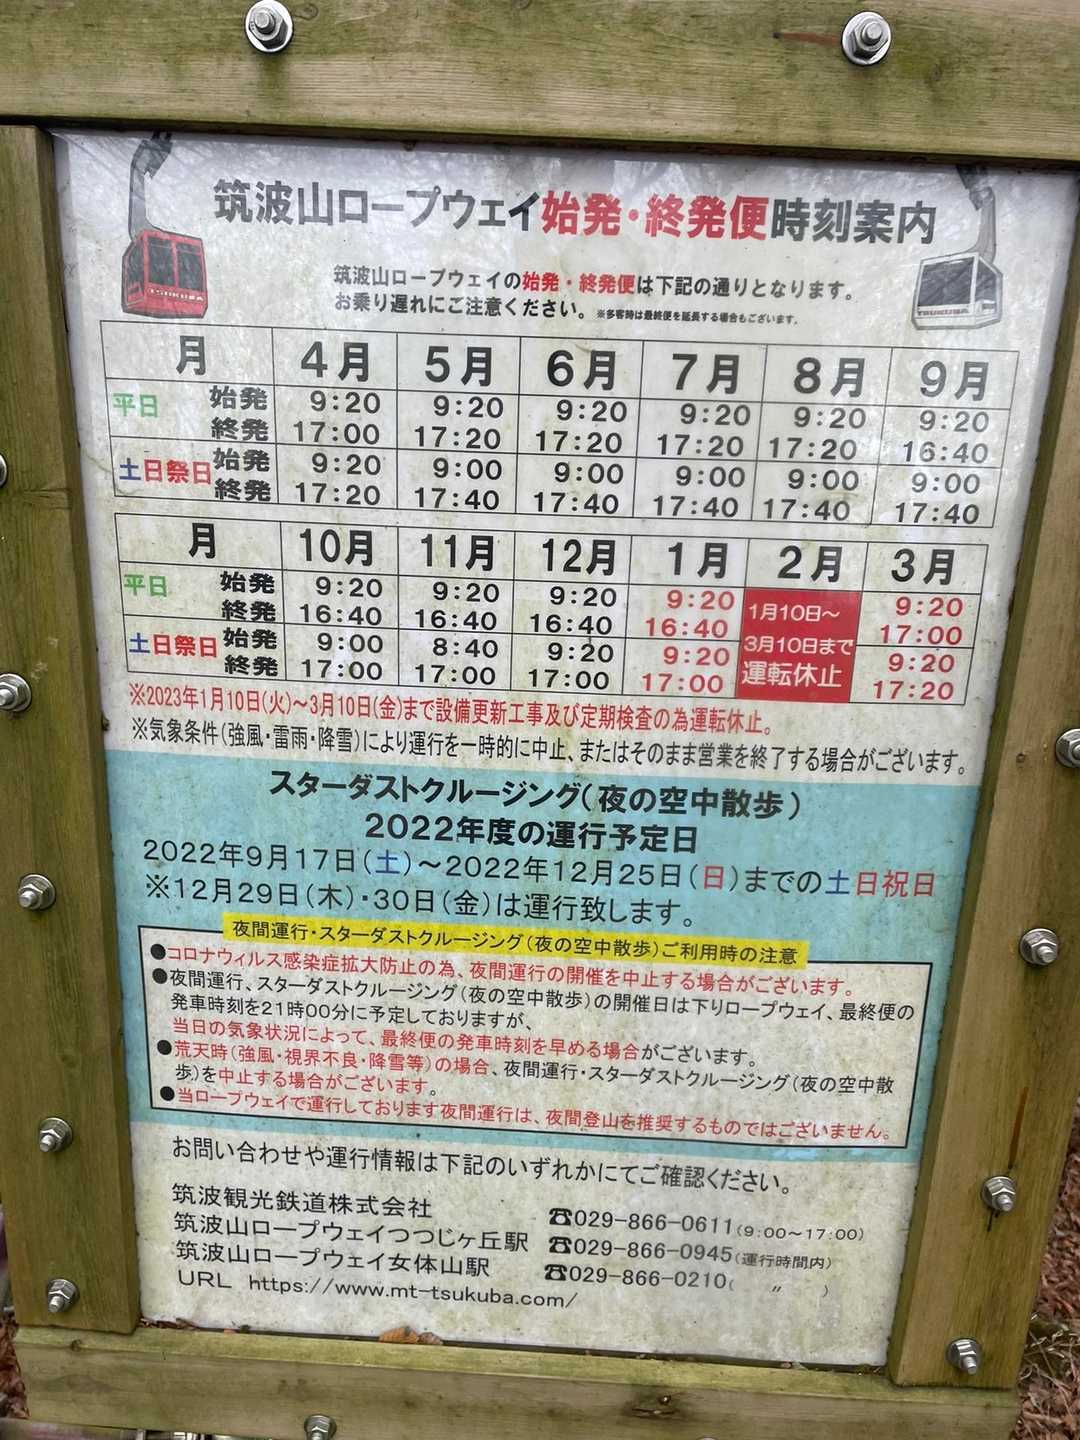 筑波山ロープウェイ始発・終発便時刻案内
TSUKUBA
TSUKUBA
筑波山ロープウェイの始発・終発便は下記の通りとなります。
お乗り遅れにご注意ください。 ※多客時は最終便を延長する場合もございます。
月 4月 5月 6月 7月 8月 9月
平日 始発 9:20 9:20 9:20 9:20 9:20 9:20
終発 17:00 17:20 17:20 17:20 17:20 16:40
土日祭日 始発 9:20 9:00 9:00 9:00 9:00 9:00
終発 17:20 17:40 17:40 17:40 17:40 17:40
月 10月 11月 12月 1月 2月 3月
平日 始発 9:20 9:20 9:20 9:20 1月10日〜 9:20
終発 16:40 16:40 16:40 16:40 3月10日まで 17:00
土日祭日 始発 9:00 8:40 9:20 9:20 運転休止 9:20
終発 17:00 17:00 17:00 17:00 17:20
※2023年1月10日(火)〜3月10日(金)まで設備更新工事及び定期検査の為運転休止。
※気象条件(強風・雷雨・降雪)により運行を一時的に中止、またはそのまま営業を終了する場合がございます。
スターダストクルージング(夜の空中散歩)
2022年度の運行予定日
2022年9月17日(土)〜2022年12月25日(日)までの土日祝日
※12月29日(木)・30日(金)は運行致します。
夜間運行・スターダストクルージング(夜の空中散歩)ご利用時の注意
●コロナウィルス感染症拡大防止の為、夜間運行の開催を中止する場合がございます。
●夜間運行、スターダストクルージング(夜の空中散歩)の開催日は下りロープウェイ、最終便の
発車時刻を21時00分に予定しておりますが、
当日の気象状況によって、最終便の発車時刻を早める場合がございます。
●荒天時(強風・視界不良・降雪等)の場合、夜間運行・スターダストクルージング(夜の空中散
歩)を中止する場合がございます。
●当ロープウェイで運行しております夜間運行は、夜間登山を推奨するものではございません。
お問い合わせや運行情報は下記のいずれかにてご確認ください。
筑波観光鉄道株式会社 ☎029-866-0611(9:00〜17:00)
筑波山ロープウェイつつじヶ丘駅 ☎029-866-0945(運行時間内)
筑波山ロープウェイ女体山駅 ☎029-866-0210( 〃 )
URL https://www.mt-tsukuba.com/